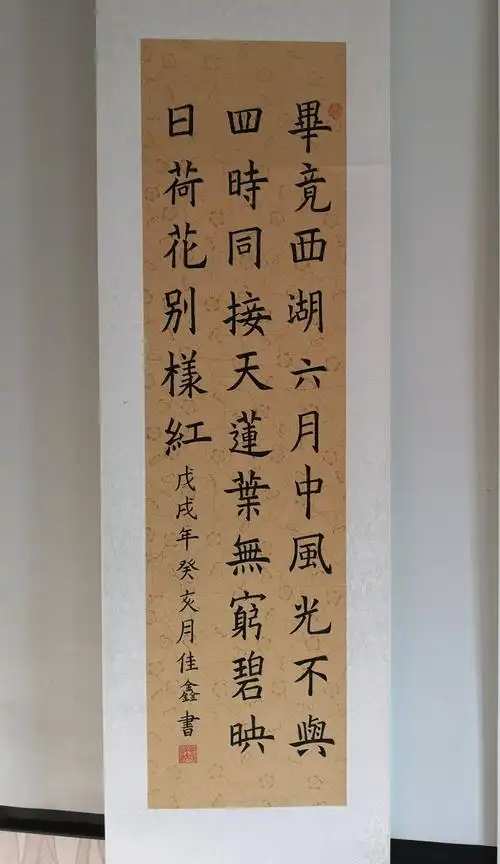 畢竟西湖六月中風光不與
四時同接天蓮葉無窮碧映
日荷花别樣紅
戊戌年癸亥月佳鑫書